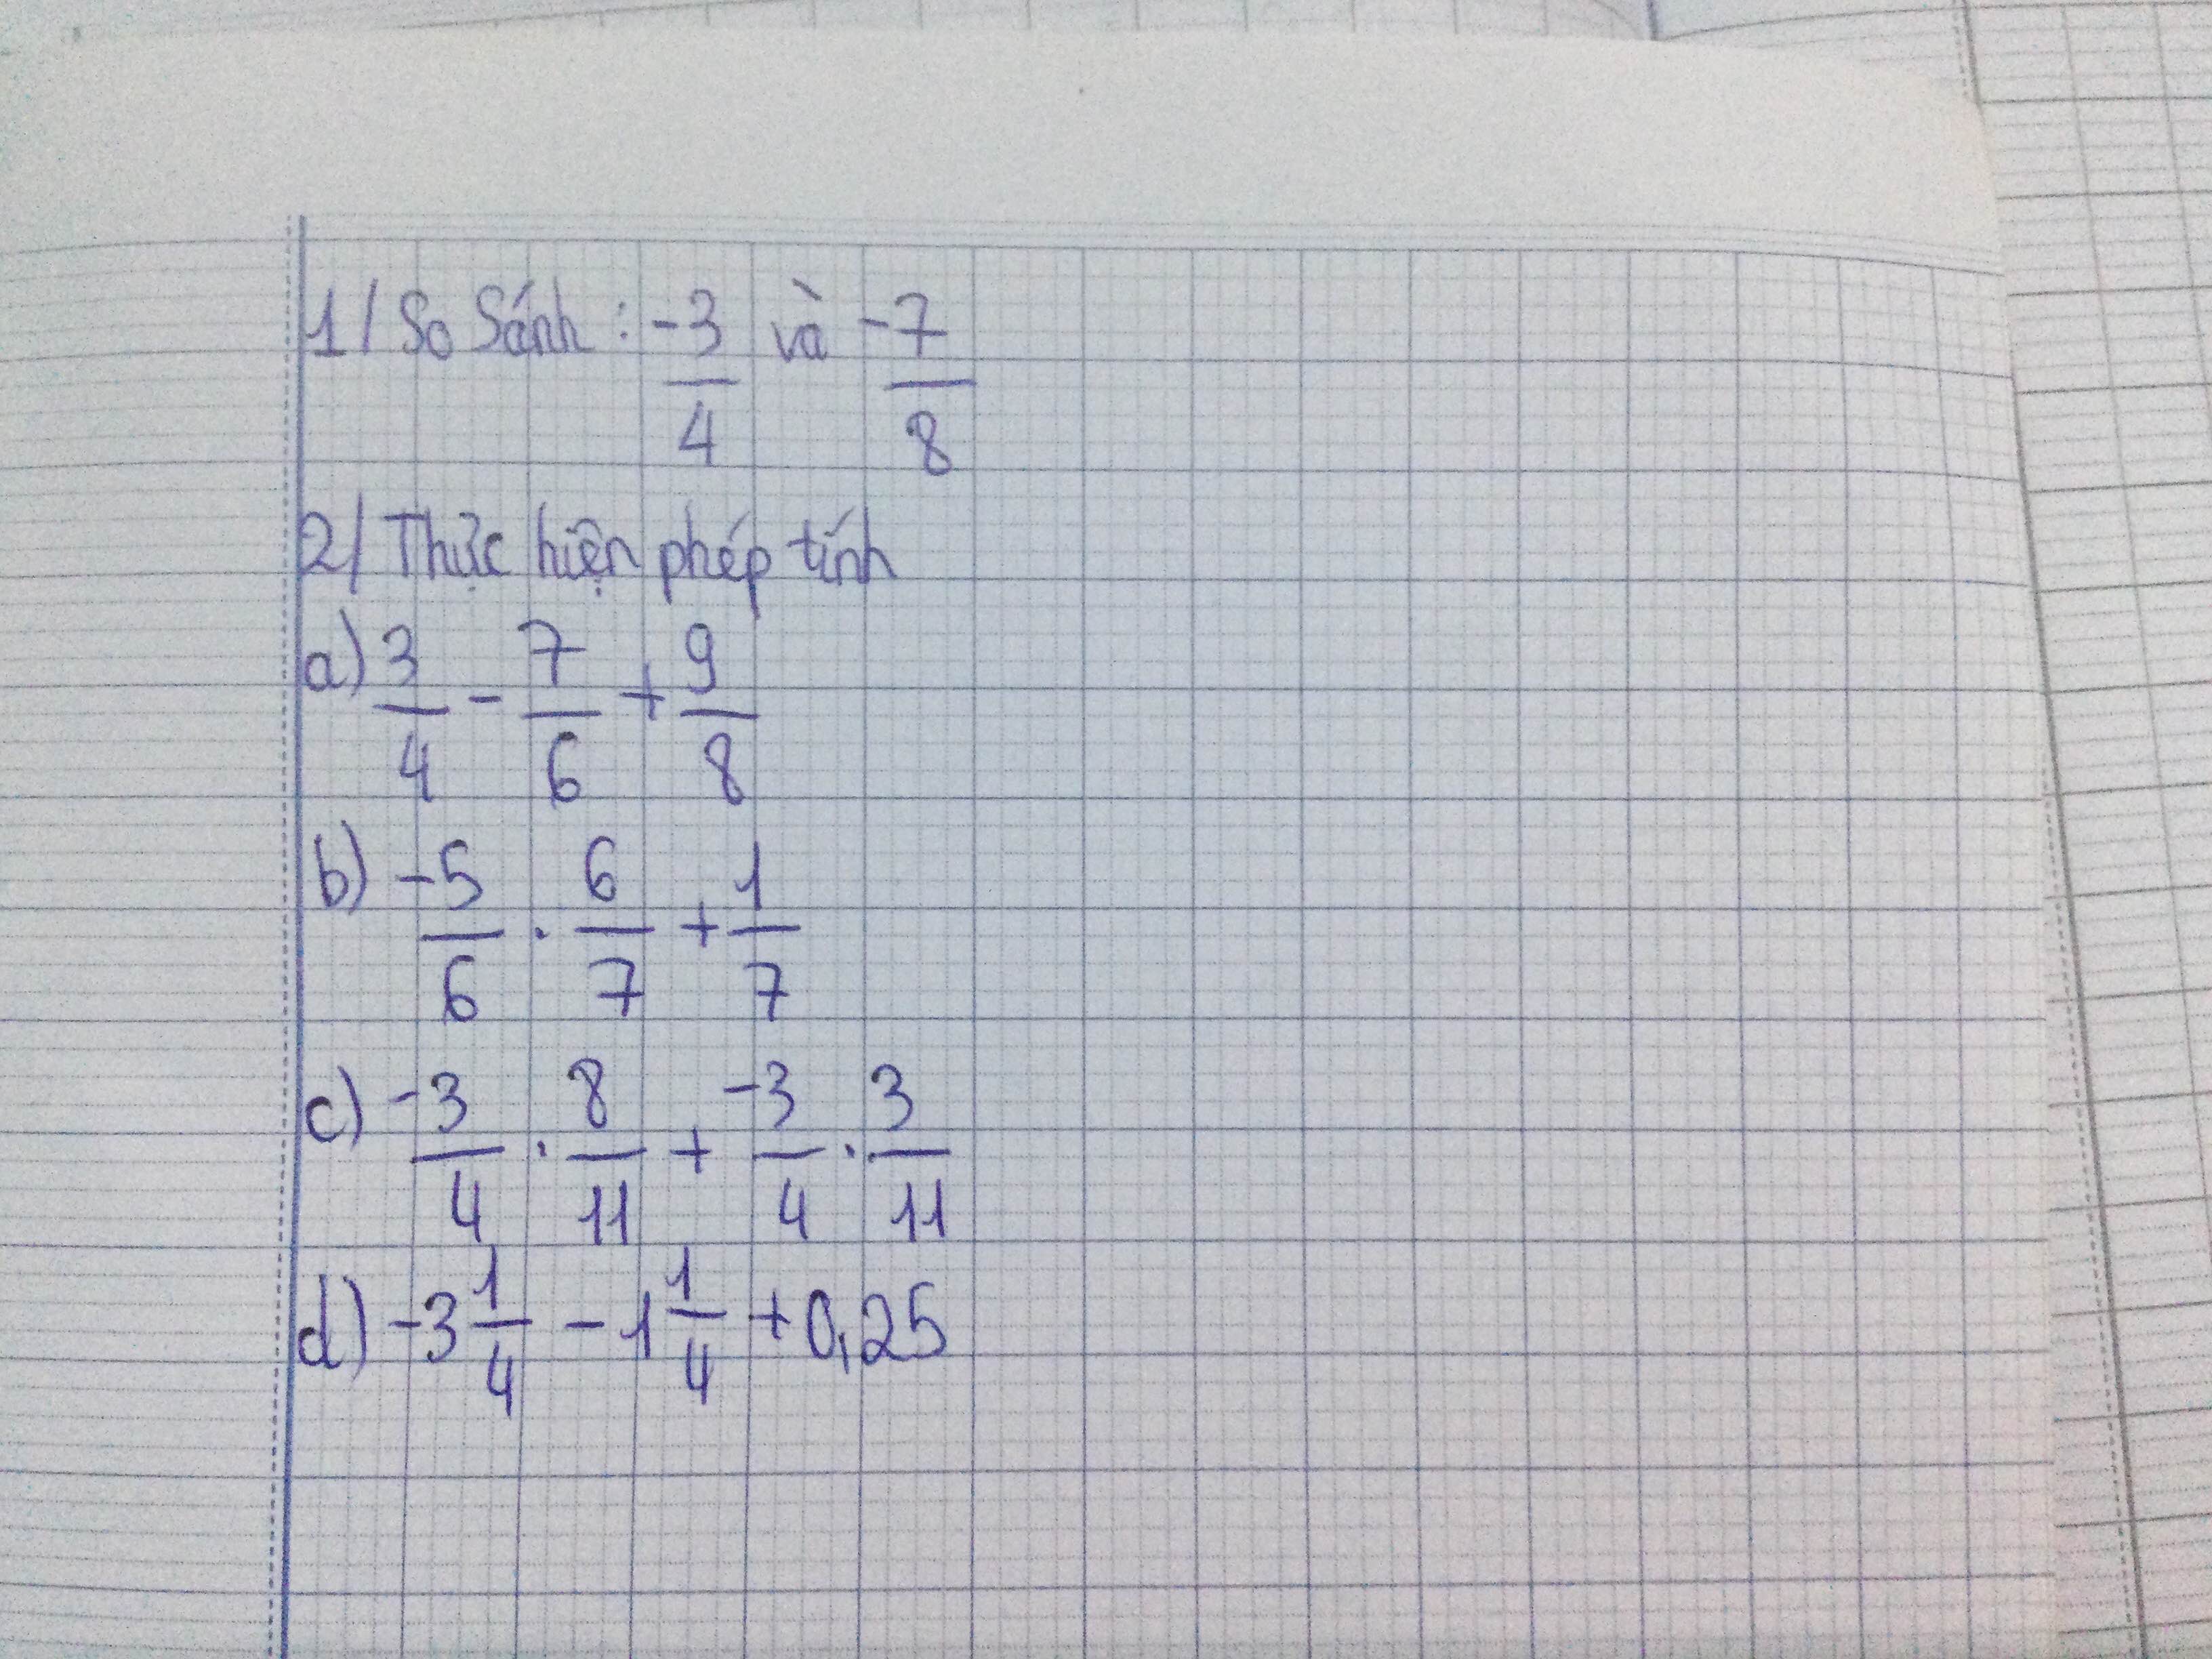 1/ So Sánh : -3/4 và -7/8
2/ Thực hiện phép tính
a) 3/4 - 7/6 + 9/8
b) -5/6 . 6/7 + 1/7
c) -3/4 . 8/11 + -3/4 . 3/11
d) -3 1/4 - 1 1/4 + 0,25